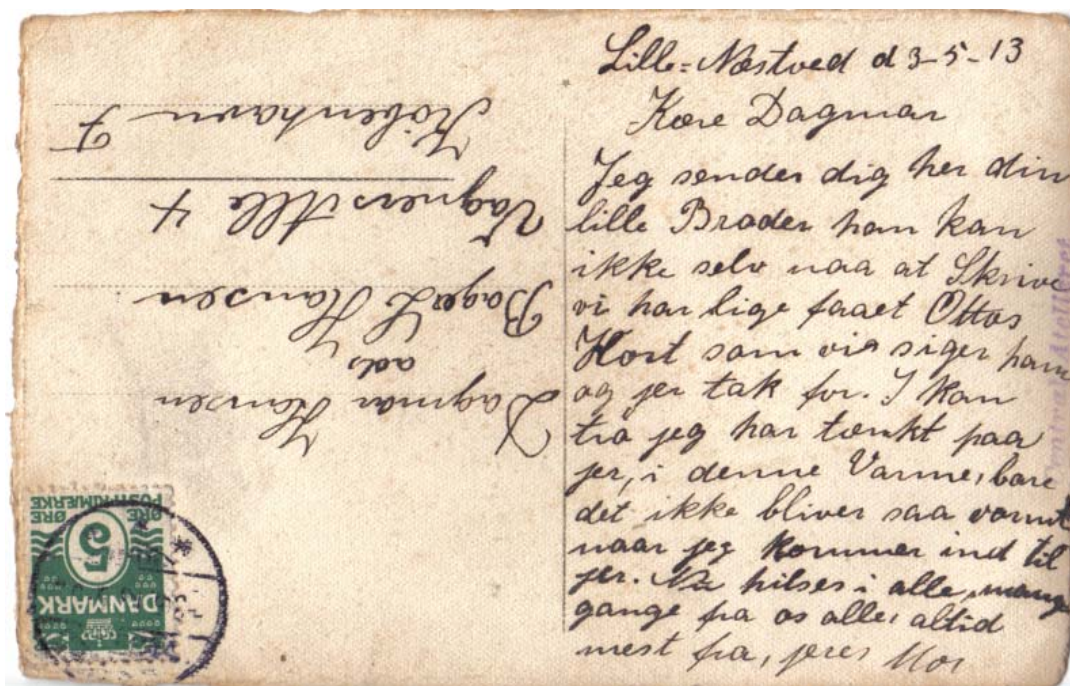 Lille-Næstved d 3-5-13
Kære Dagmar
Jeg sender dig her din
lille Broder han kan
ikke selv naa at Skrive
vi har lige faaet Ottos
Kort som vi siger ham
og jer tak for. I kan
tro jeg har tænkt paa
jer, i denne Varme, bare
det ikke bliver saa varmt
naar jeg kommer ind til
jer. Nu hilses i alle, mange
gange fra os alle, altid
mest fra, jeres Mor
Dagmar Hansen
ads
Bager L Hansen
Vagners Alle 4
Köbenhavn F
DANMARK
5
ØRE ØRE
POSTFRIMÆRKE